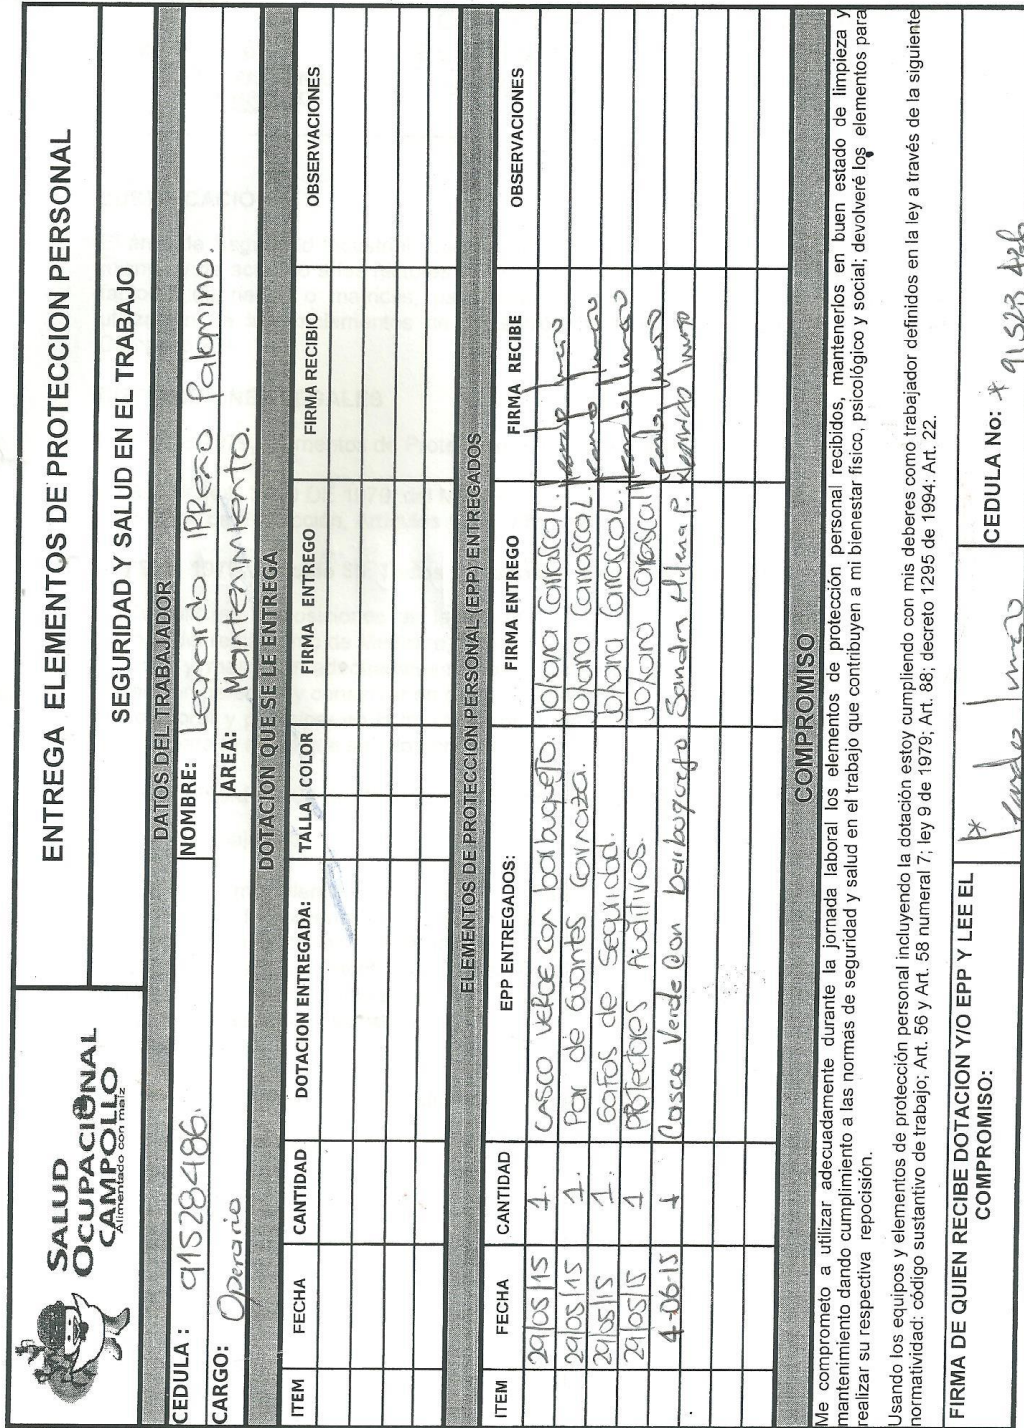 SALUD
OCUPACIONAL
CAMPOLLO
Alimentado con maíz
ENTREGA ELEMENTOS DE PROTECCION PERSONAL
SEGURIDAD Y SALUD EN EL TRABAJO
DATOS DEL TRABAJADOR
CEDULA : 91528486. NOMBRE: Leonardo IRREño Palomino.
CARGO: Operario AREA: Mantenimiento.
DOTACION QUE SE LE ENTREGA
ITEM FECHA CANTIDAD DOTACION ENTREGADA: TALLA COLOR FIRMA ENTREGO FIRMA RECIBIO OBSERVACIONES
ELEMENTOS DE PROTECCION PERSONAL (EPP) ENTREGADOS
ITEM FECHA CANTIDAD EPP ENTREGADOS: FIRMA ENTREGO FIRMA RECIBE OBSERVACIONES
29/05/15 1. CASCO VERDE con barbuquejo. Johana Carrascal.
29/05/15 1. Par de Guantes Carnaza. Johana Carrascal.
29/05/15 1. Gafas de Seguridad. Johana Carrascal.
29/05/15 1 PROtectores Auditivos. Johana Carrascal
4-06-15 1 Casco Verde Con barbuquejo Sandra Milena P.
COMPROMISO
Me comprometo a utilizar adecuadamente durante la jornada laboral los elementos de protección personal recibidos, mantenerlos en buen estado de limpieza y
mantenimiento dando cumplimiento a las normas de seguridad y salud en el trabajo que contribuyen a mi bienestar físico, psicológico y social; devolveré los elementos para
realizar su respectiva reposición.
Usando los equipos y elementos de protección personal incluyendo la dotación estoy cumpliendo con mis deberes como trabajador definidos en la ley a través de la siguiente
normatividad: código sustantivo de trabajo; Art. 56 y Art. 58 numeral 7; ley 9 de 1979; Art. 88; decreto 1295 de 1994; Art. 22.
FIRMA DE QUIEN RECIBE DOTACION Y/O EPP Y LEE EL
COMPROMISO:
CEDULA No: * 91528486